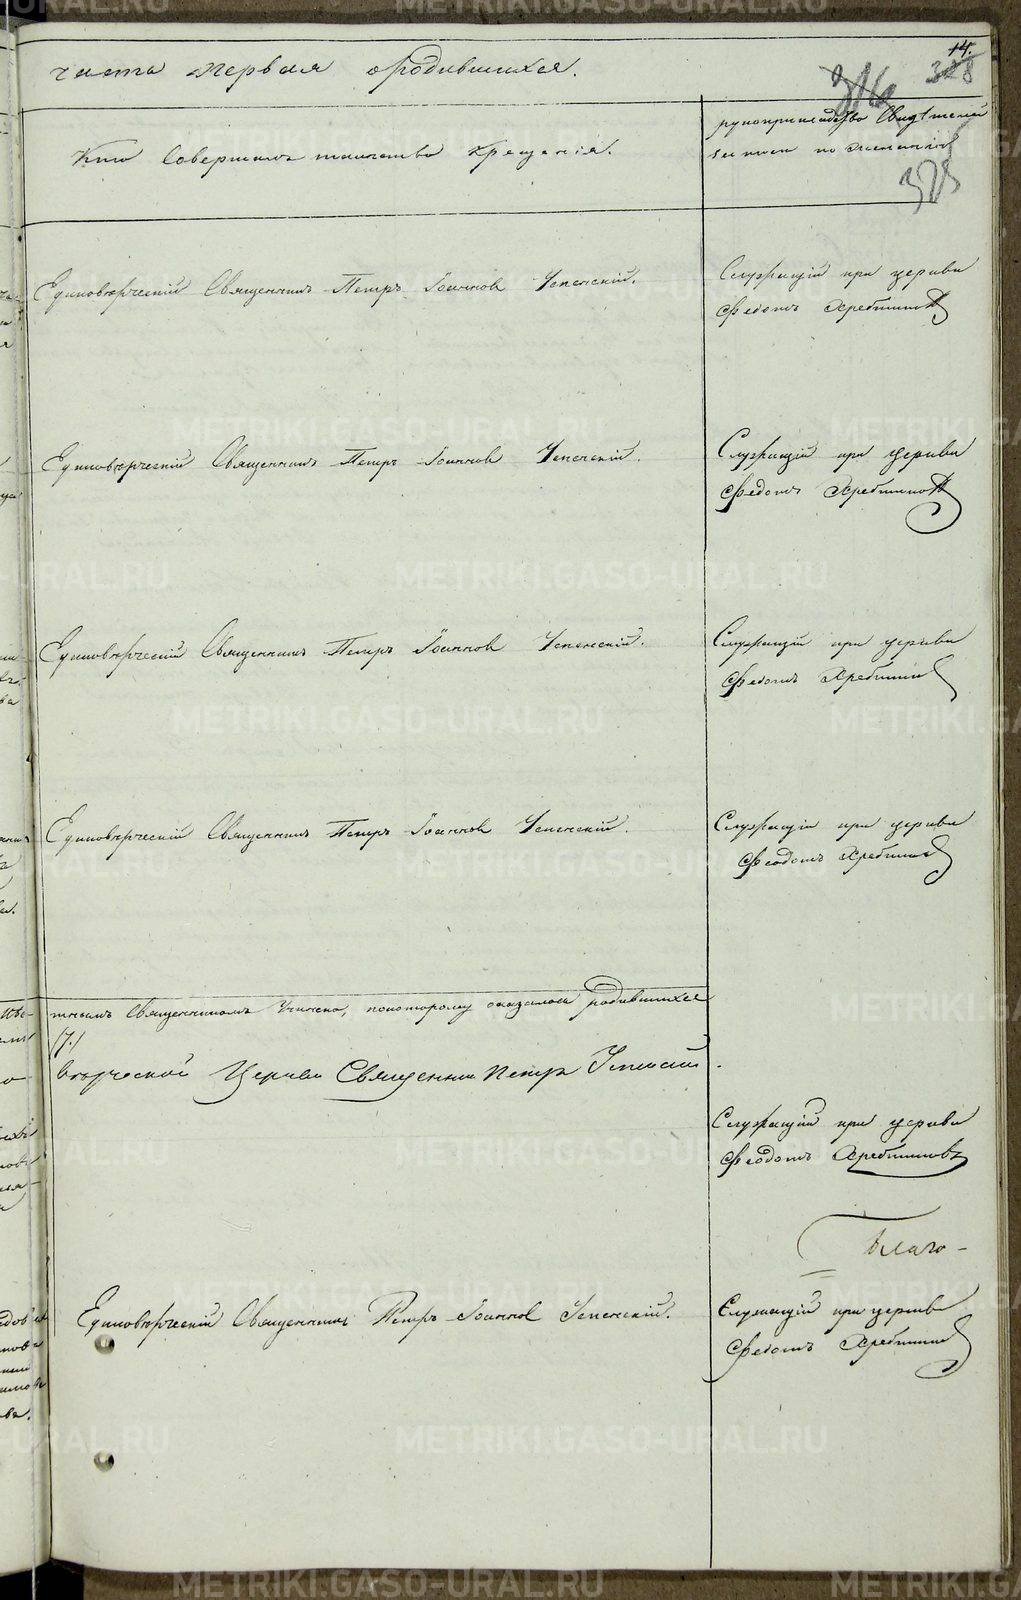 14.
часть первая о родившихся.
316 328
Кто совершалъ таинство крещенія.
рукоприкладство свидѣтелей
записи по желанію
328
Единовѣрческій Священникъ Петръ Іоанновъ Успенскій.
Служащій при церкви
Федотъ Хребтиковъ
Единовѣрческій Священникъ Петръ Іоанновъ Успенскій.
Служащій при церкви
Федотъ Хребтиковъ
Единовѣрческій Священникъ Петръ Іоанновъ Успенскій.
Служащій при церкви
Федотъ Хребтиковъ
Единовѣрческій Священникъ Петръ Іоанновъ Успенскій.
Служащій при церкви
Феодотъ Хребтиковъ
тнымъ Священникомъ Учинено, покоторому оказалося родившихся
(7.)
вѣрческой Церкви Священникъ Петръ Успенскій.
Служащій при церкви
Феодотъ Хребтиковъ
Благо-
Единовѣрческій Священникъ Петръ Іоанновъ Успенскій.
Служащій при церкви
Федотъ Хребтиковъ
METRIKI.GASO-URAL.RU